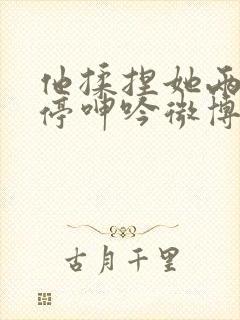 他揉捏她两
停呻吟微博
古月千里